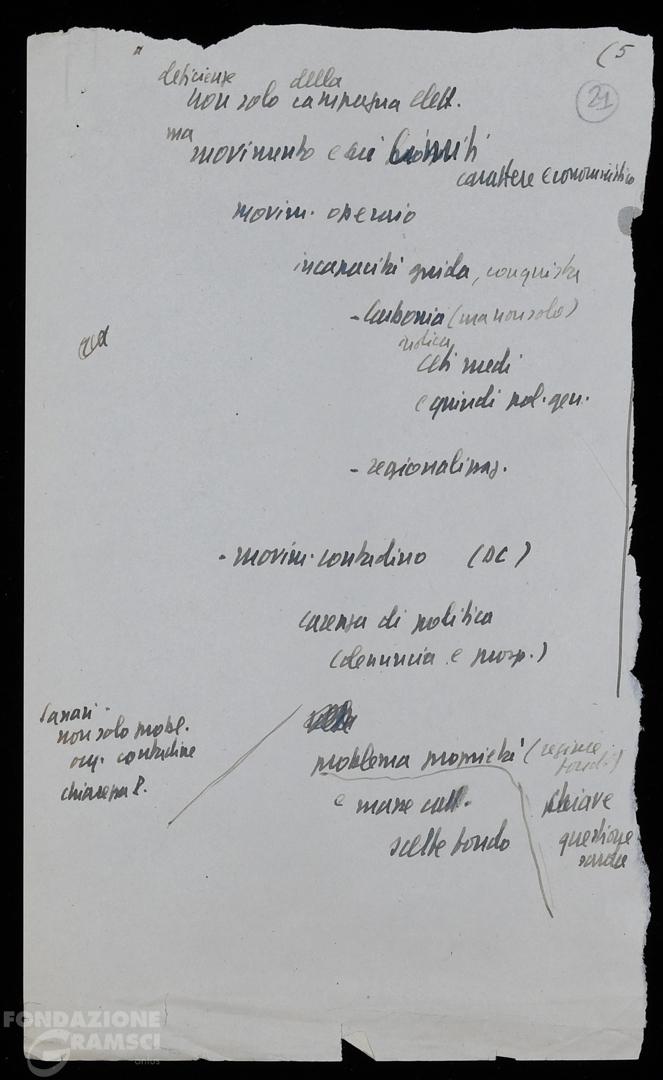 (5
21
deficienze della
non solo campagna elett.
ma
movimento e suoi limiti
carattere economistico
movim. operaio
incapacità guida, conquista
- Carbonia (ma non solo)
ceti medi
e quindi pol. gen.
- regionalismo.
- movim. contadino (DC)
carenza di politica
(denuncia e prosp.)
Sassari
non solo probl.
org. contadine
chiarezza P.
problema proprietà (regime fondi)
e masse catt. chiave
scelte fondo questione
sarda
FONDAZIONE
GRAMSCI
onlus